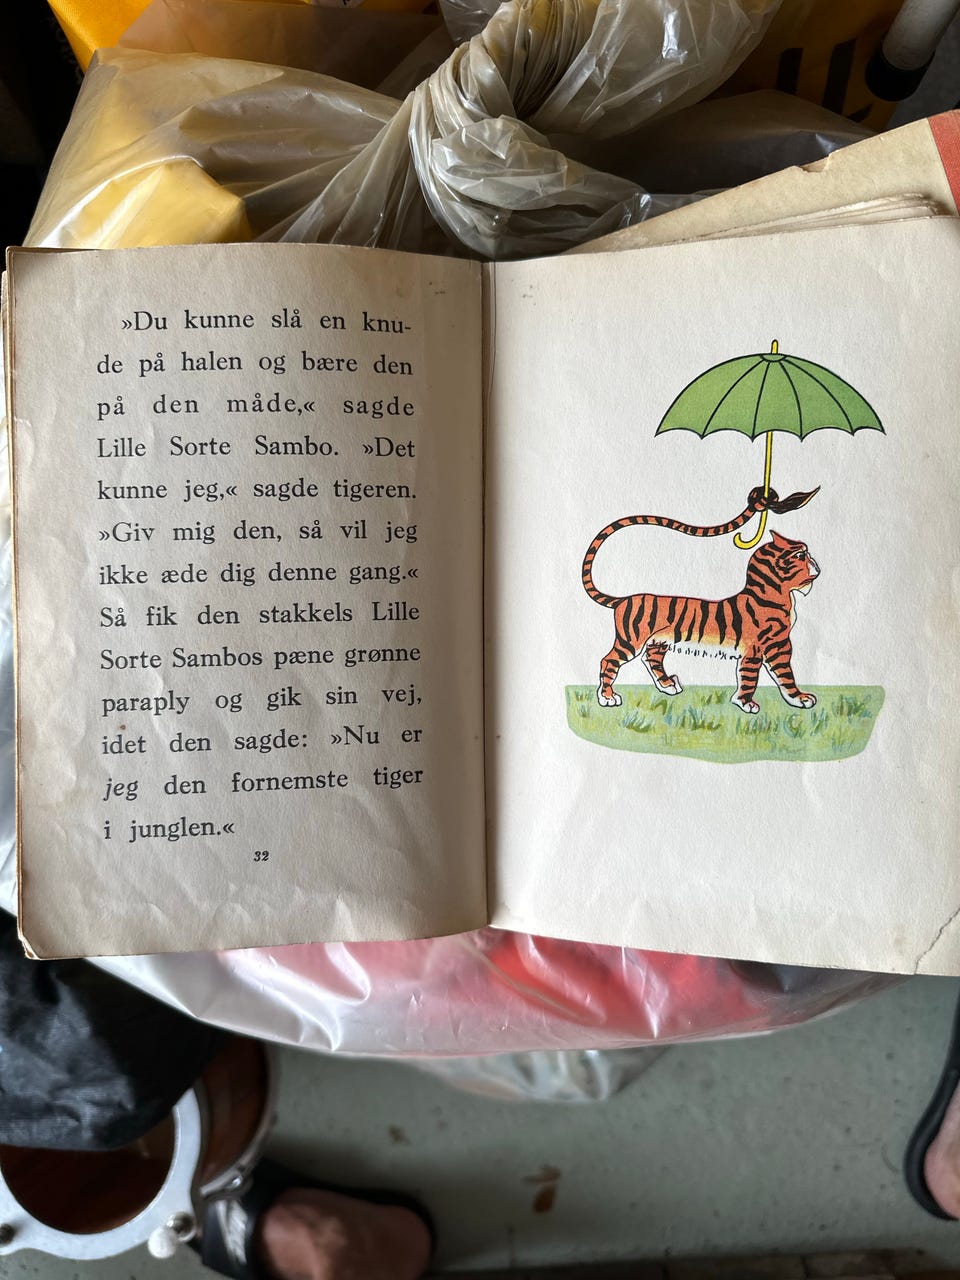 »Du kunne slå en knu-
de på halen og bære den
på den måde,« sagde
Lille Sorte Sambo. »Det
kunne jeg,« sagde tigeren.
»Giv mig den, så vil jeg
ikke æde dig denne gang.«
Så fik den stakkels Lille
Sorte Sambos pæne grønne
paraply og gik sin vej,
idet den sagde: »Nu er
jeg den fornemste tiger
i junglen.«
32